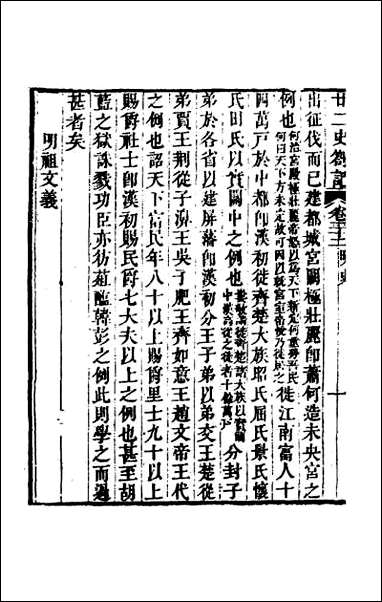 廿二史劄記 卷三十二 明史 十
出征伐而已建都城宮闕極壯麗卽蕭何造未央宮之
例也何治宮殿極壯麗帝怒以爲天下
何曰天下方未定故可因以就宮室帝悅乃徙居之徙江南富人十
四萬戶於中都卽漢初徙齊楚大族昭氏屈氏景氏懷
氏田氏以實關中之例也婁敬請徙齊楚諸大族以實關
中漢高從之徙者十餘萬戶分封子
弟於各省以建屏藩卽漢初分王子弟以弟交王楚從
弟賈王荆從子濞王吳子肥王齊如意王趙文帝王代
之例也詔天下富民年八十以上賜爵里士九十以上
賜爵社士卽漢初賜民爵七大夫以上之例也甚至胡
藍之獄誅戮功臣亦彷菹醢韓彭之例此則學之而過
甚者矣
明祖文義